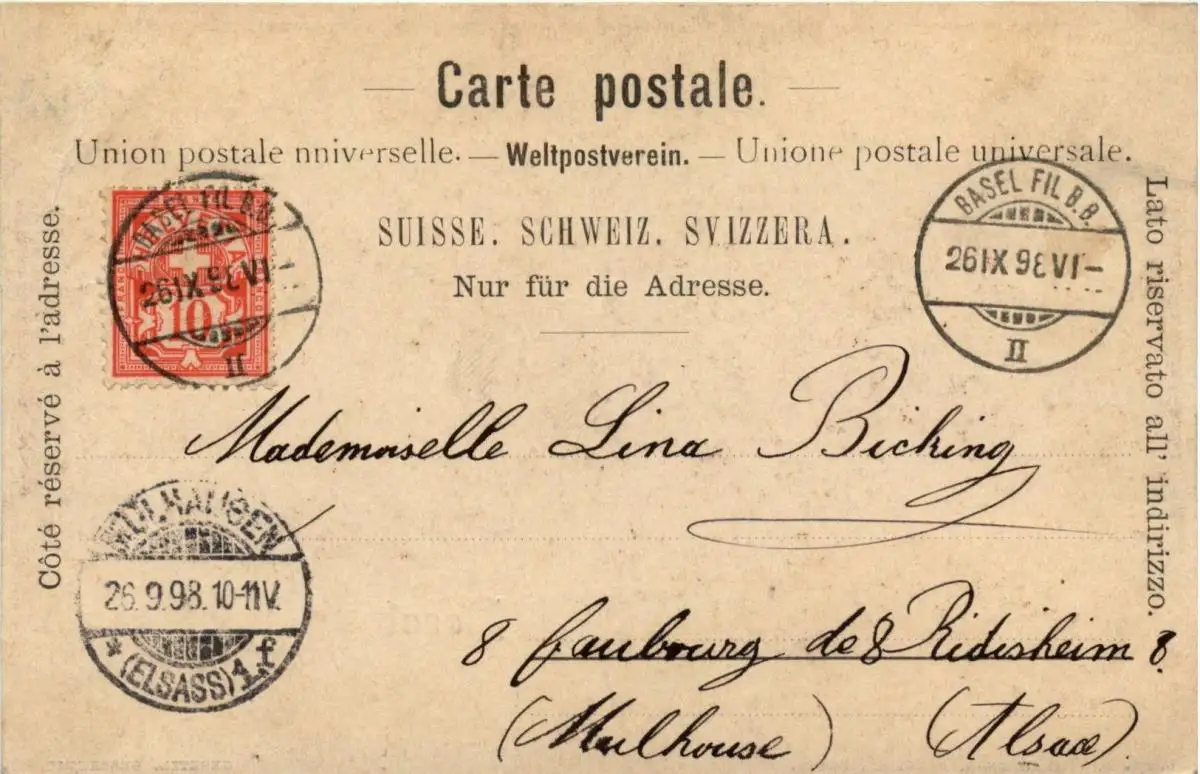 Carte postale.
Union postale nniverselle. — Weltpostverein. — Unione postale universale.
SUISSE. SCHWEIZ. SVIZZERA.
Nur für die Adresse.
Côté réservé à l'adresse.
Lato riservato all' indirizzo.
BASEL FIL B.B.
26 IX 98 VI –
II
10
BASEL FIL B.B.
26 IX 98 VI –
II
Mademoiselle Lina Bicking
MÜLHAUSEN
26.9.98.10-11V.
* (ELSASS) 1 f
8 faubourg de 8 Ridisheim 8.
(Mulhouse) (Alsace)